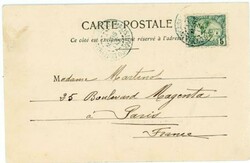 CARTE POSTALE
Ce côté est exclusivement réservé à l'adresse
5
Madame Martenot
35 Boulevard Magenta
à
Paris
France